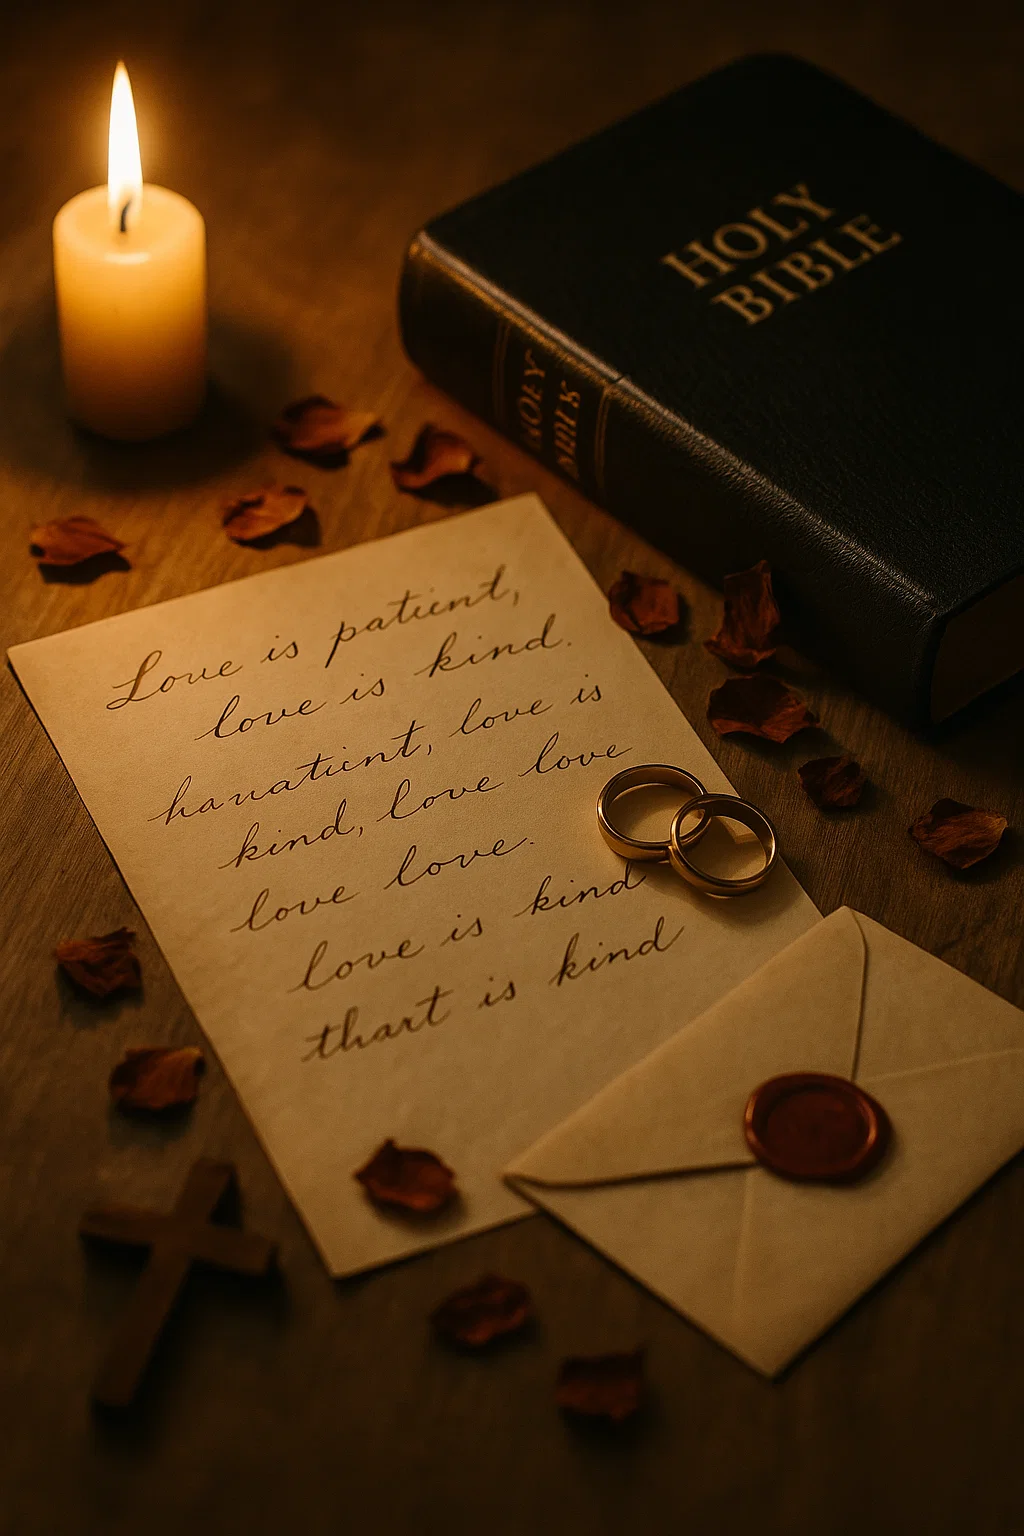 HOLY
BIBLE
HOLY
Love is patient,
love is kind.
hanatient, love is
kind, love love
love love.
love is kind
thart is kind